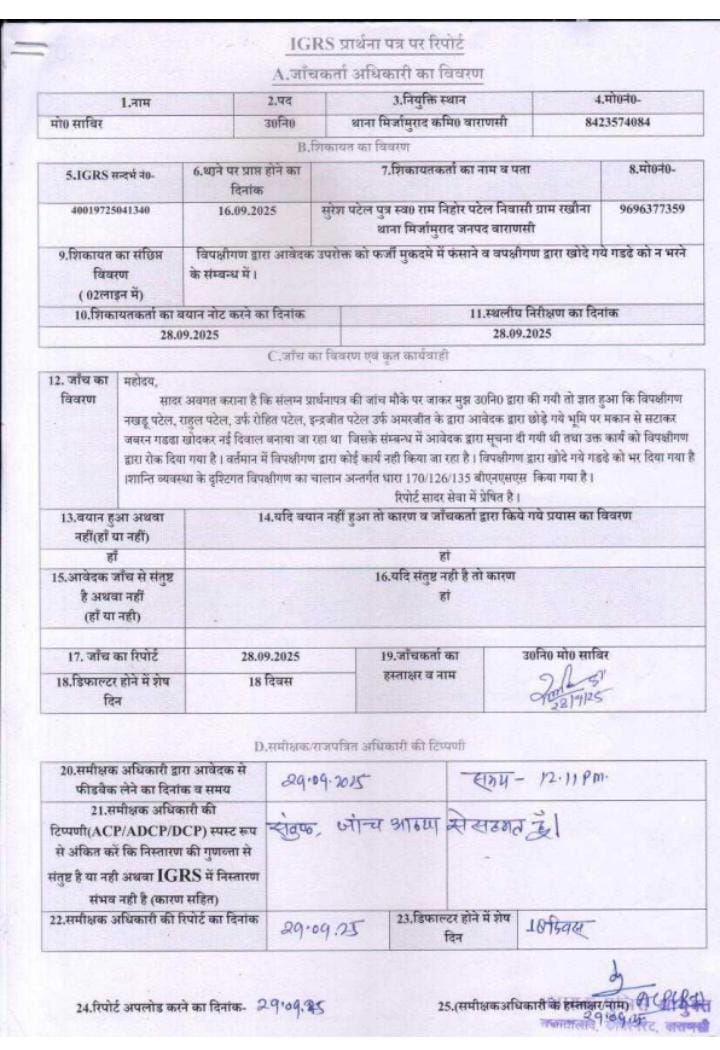 IGRS प्रार्थना पत्र पर रिपोर्ट
A.जाँचकर्ता अधिकारी का विवरण
1.नाम 2.पद 3.नियुक्ति स्थान 4.मो0नं0-
मो0 साबिर उ0नि0 थाना मिर्जामुराद कमि0 वाराणसी 8423574084
B.शिकायत का विवरण
5.IGRS सन्दर्भ नं0- 6.थाने पर प्राप्त होने का दिनांक 7.शिकायतकर्ता का नाम व पता 8.मो0नं0-
40019725041340 16.09.2025 सुरेश पटेल पुत्र स्व0 राम निहोर पटेल निवासी ग्राम रखौना थाना मिर्जामुराद जनपद वाराणसी 9696377359
9.शिकायत का संछिप्त विवरण ( 02लाइन में)
विपक्षीगण द्वारा आवेदक उपरोक्त को फर्जी मुकदमे में फंसाने व वपक्षीगण द्वारा खोदे गये गडढे को न भरने
के संम्बन्ध में।
10.शिकायतकर्ता का बयान नोट करने का दिनांक 11.स्थलीय निरीक्षण का दिनांक
28.09.2025 28.09.2025
C.जाँच का विवरण एवं कृत कार्यवाही
12. जाँच का विवरण
महोदय,
सादर अवगत कराना है कि संलग्न प्रार्थनापत्र की जांच मौके पर जाकर मुझ उ0नि0 द्वारा की गयी तो ज्ञात हुआ कि विपक्षीगण
नखडू पटेल, राहुल पटेल, उर्फ रोहित पटेल, इन्द्रजीत पटेल उर्फ अमरजीत के द्वारा आवेदक द्वारा छोड़े गये भूमि पर मकान से सटाकर
जबरन गडढा खोदकर नई दिवाल बनाया जा रहा था जिसके संम्बन्ध में आवेदक द्वारा सूचना दी गयी थी तथा उक्त कार्य को विपक्षीगण
द्वारा रोक दिया गया है। वर्तमान में विपक्षीगण द्वारा कोई कार्य नही किया जा रहा है। विपक्षीगण द्वारा खोदे गये गडढे को भर दिया गया है
।शान्ति व्यवस्था के दृष्टिगत विपक्षीगण का चालान अन्तर्गत धारा 170/126/135 बीएनएसएस किया गया है।
रिपोर्ट सादर सेवा में प्रेषित है।
13.बयान हुआ अथवा नहीं(हाँ या नहीं) 14.यदि बयान नहीं हुआ तो कारण व जाँचकर्ता द्वारा किये गये प्रयास का विवरण
हाँ हां
15.आवेदक जाँच से संतुष्ट है अथवा नहीं (हाँ या नही) 16.यदि संतुष्ट नही है तो कारण
हां
17. जाँच का रिपोर्ट 28.09.2025 19.जाँचकर्ता का हस्ताक्षर व नाम उ0नि0 मो0 साबिर
18.डिफाल्टर होने में शेष दिन 18 दिवस
28/9/25
D.समीक्षक/राजपत्रित अधिकारी की टिप्पणी
20.समीक्षक अधिकारी द्वारा आवेदक से फीडबैक लेने का दिनांक व समय 29.09.2025 समय - 12.11 PM.
21.समीक्षक अधिकारी की टिप्पणी(ACP/ADCP/DCP) स्पस्ट रूप से अंकित करें कि निस्तारण की गुणव्ता से संतुष्ट है या नही अथवा IGRS में निस्तारण संभव नही है (कारण सहित)
जांच आख्या से सहमत हूँ।
22.समीक्षक अधिकारी की रिपोर्ट का दिनांक 29.09.25 23.डिफाल्टर होने में शेष दिन 18 दिवस
24.रिपोर्ट अपलोड करने का दिनांक- 29.09.25 25.(समीक्षकअधिकारी के हस्ताक्षर/नाम)
29.09.25